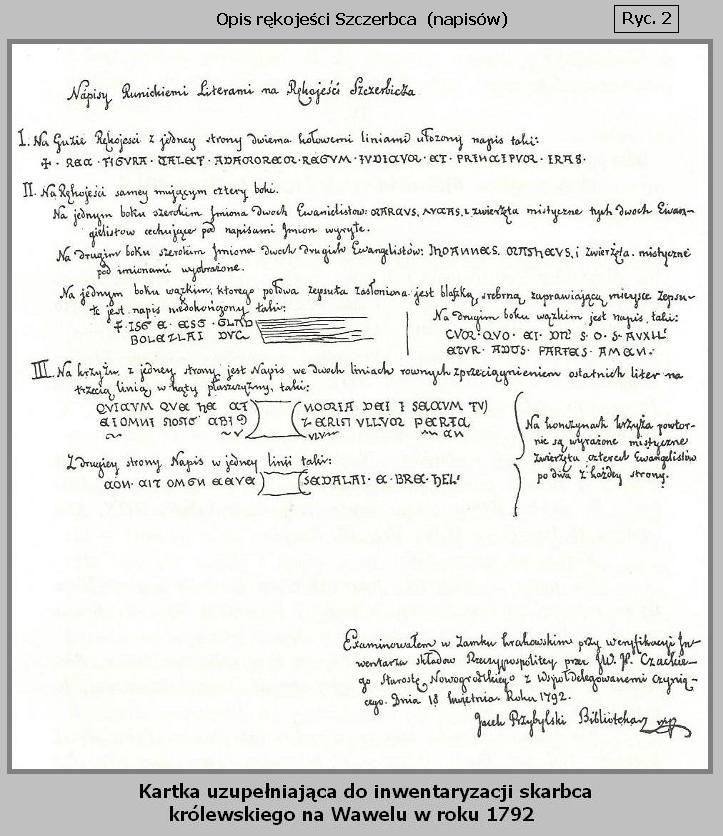 Opis rękojeści Szczerbca (napisów)
Ryc. 2
Napisy Runickiemi Literami na Rękojeści Szczerbicza
I. Na Guzie Rękojeści z jedney strony dwiema kołowemi liniami ułożony napis taki:
REC · FIGURA · TALET · ADAMOREM · REGUM · IUDICUM · ET · PRINCIPUM · IRAS ·
II. Na Rękojeści samey maiącym cztery boki.
Na jednym boku szerokim Jmiona dwoch Ewanielistow: MARCUS, LUCAS, i zwierzęta mistyczne tych dwoch Ewan-
gielistow cechujące pod napisami Jmion wyryte.
Na drugim boku szerokim Jmiona dwoch drugich Ewangelistów: IHOANNES. MATHEUS, i zwierzęta mistyczne
pod imionami wyobrażone.
Na jednym boku wązkim, ktorego połowa zepsuta zasłoniona jest blaszką srebrną zaprawiaiącą mieysce zepsu-
te jest napis niedokończony taki:
ISTE · E · EST · GLAD
BOLEZLAI DUC
Na drugim boku wązkim jest napis taki:
CUM · QUO · EI · DNS · S · O · S · AUXIL
ETUR · ADUS · PARTES · AMEN ·
III. Na krzyżu z jedney strony jest Napis we dwoch liniach rownych z przeciągnieniem ostatnich liter na
trzecią linią w kąty płaszczyzny, taki:
QUICUM QUE HEC
NOMINA DEI SECUM TU
Z drugiey strony Napis w jedney linii taki:
CON · CIT OMON EEVE
SEDALAI · E · BRE · HEL
Na kończynach krzyża powtor-
nie są wyrażone mistyczne
zwierzęta czterech Ewangelistów
po dwa z każdey strony.
Examinowałem w Zamku krakowskim przy weryfikacyi In-
wentarza składów Rzeczypospolitey przez JW. P. Czackie-
go Starostę Nowogrodzkiego z Współdelegowanemi czynią-
cego. Dnia 18 kwietnia Roku 1792.
Jacek Przybylski Bibliotekarz
Kartka uzupełniająca do inwentaryzacji skarbca
królewskiego na Wawelu w roku 1792